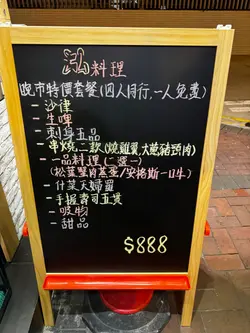 泓料理
晚市特價套餐(四人同行,一人免費)
- 沙律
- 生啤
- 刺身五品
- 串燒二款(燒雞翼,大蔥豬頸肉)
- 一品料理(二選一)
(松葉蟹肉蒸蛋/安格斯一口牛)
- 什菜天婦羅
- 手握壽司五貫
- 吸物
- 甜品
$888